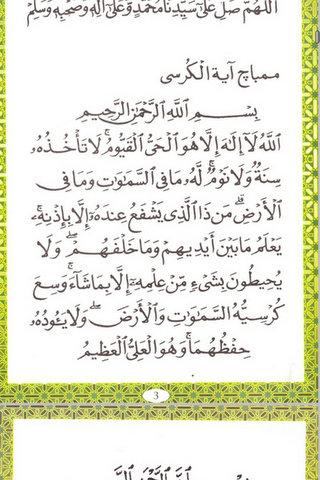 اَللّٰهُمَّ صَلِّ عَلٰى سَيِّدِنَا مُحَمَّدٍ وَعَلٰى اٰلِهِ وَصَحْبِهِ وَسَلِّمْ
ممباچ آية الكرسى
بِسْمِ اللَّهِ الرَّحْمَٰنِ الرَّحِيمِ
اللَّهُ لَآ إِلَٰهَ إِلَّا هُوَ الْحَيُّ الْقَيُّومُ ۚ لَا تَأْخُذُهُۥ
سِنَةٌ وَلَا نَوْمٌ ۚ لَّهُۥ مَا فِى السَّمَٰوَٰتِ وَمَا فِى
الْأَرْضِ ۗ مَن ذَا الَّذِى يَشْفَعُ عِندَهُۥٓ إِلَّا بِإِذْنِهِۦ ۚ
يَعْلَمُ مَا بَيْنَ أَيْدِيهِمْ وَمَا خَلْفَهُمْ ۖ وَلَا
يُحِيطُونَ بِشَىْءٍ مِّنْ عِلْمِهِۦٓ إِلَّا بِمَا شَآءَ ۚ وَسِعَ
كُرْسِيُّهُ السَّمَٰوَٰتِ وَالْأَرْضَ ۖ وَلَا يَـُٔودُهُۥ
حِفْظُهُمَا ۚ وَهُوَ الْعَلِىُّ الْعَظِيمُ
3